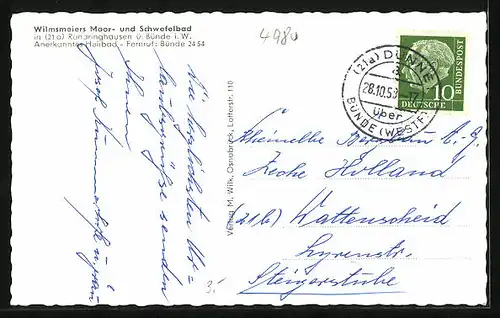 Wilmsmeiers Moor- und Schwefelbad
in (21a) Randringhausen ü. Bünde i. W.
Anerkanntes Heilbad - Fernruf: Bünde 2454
4980
Die herzlichsten Ur-
laubsgrüße senden
Ihnen
Josef u. Frau
3.-
Verlag M. Wilk, Osnabrück, Lotterstr. 110
(21a) DÜNNE
a
28.10.58
über
BÜNDE (WESTF)
10
DEUTSCHE
BUNDESPOST
Rheinelbe Bergbau A.-G.
Zeche Holland
(21b) Wattenscheid
Lyrenstr.
Steigerstube